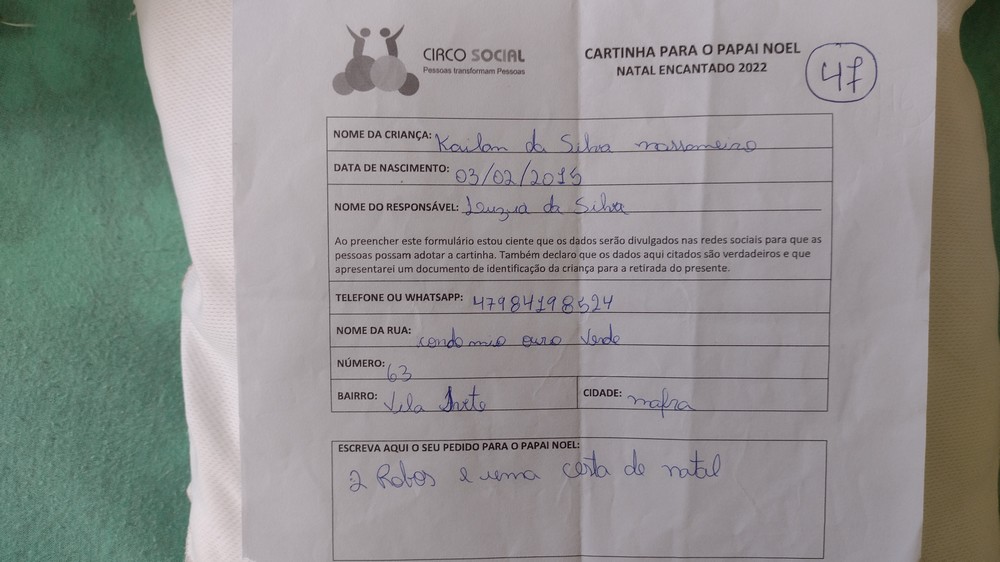 CIRCO SOCIAL
Pessoas transformam Pessoas
CARTINHA PARA O PAPAI NOEL
NATAL ENCANTADO 2022
47
NOME DA CRIANÇA: Kailan da Silva
DATA DE NASCIMENTO: 03/02/2015
NOME DO RESPONSÁVEL: Leuzua da Silva
Ao preencher este formulário estou ciente que os dados serão divulgados nas redes sociais para que as
pessoas possam adotar a cartinha. Também declaro que os dados aqui citados são verdadeiros e que
apresentarei um documento de identificação da criança para a retirada do presente.
TELEFONE OU WHATSAPP: 47984198524
NOME DA RUA: condomio ouro Verde
NÚMERO: 63
BAIRRO: Vila Ivete
CIDADE: mafra
ESCREVA AQUI O SEU PEDIDO PARA O PAPAI NOEL:
2 Robos e uma cesta de natal